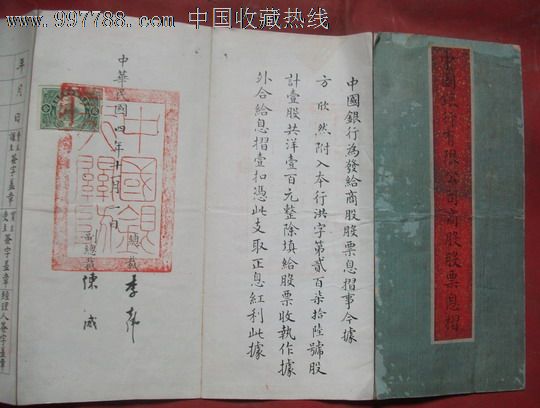 www.997788.com 中国收藏热线
中國銀行有限公司商股股票息摺
中國銀行為發給商股股票息摺事今據
方欣然附入本行洪字第貳百柒拾陸號股
計壹股共洋壹百元整除填給股票收執作據
外合給息摺壹扣憑此支取正息紅利此據
中華民國四年十月一日
總裁李
副總裁陳威
年月日
簽字蓋章
簽字蓋章
經理人簽字蓋章